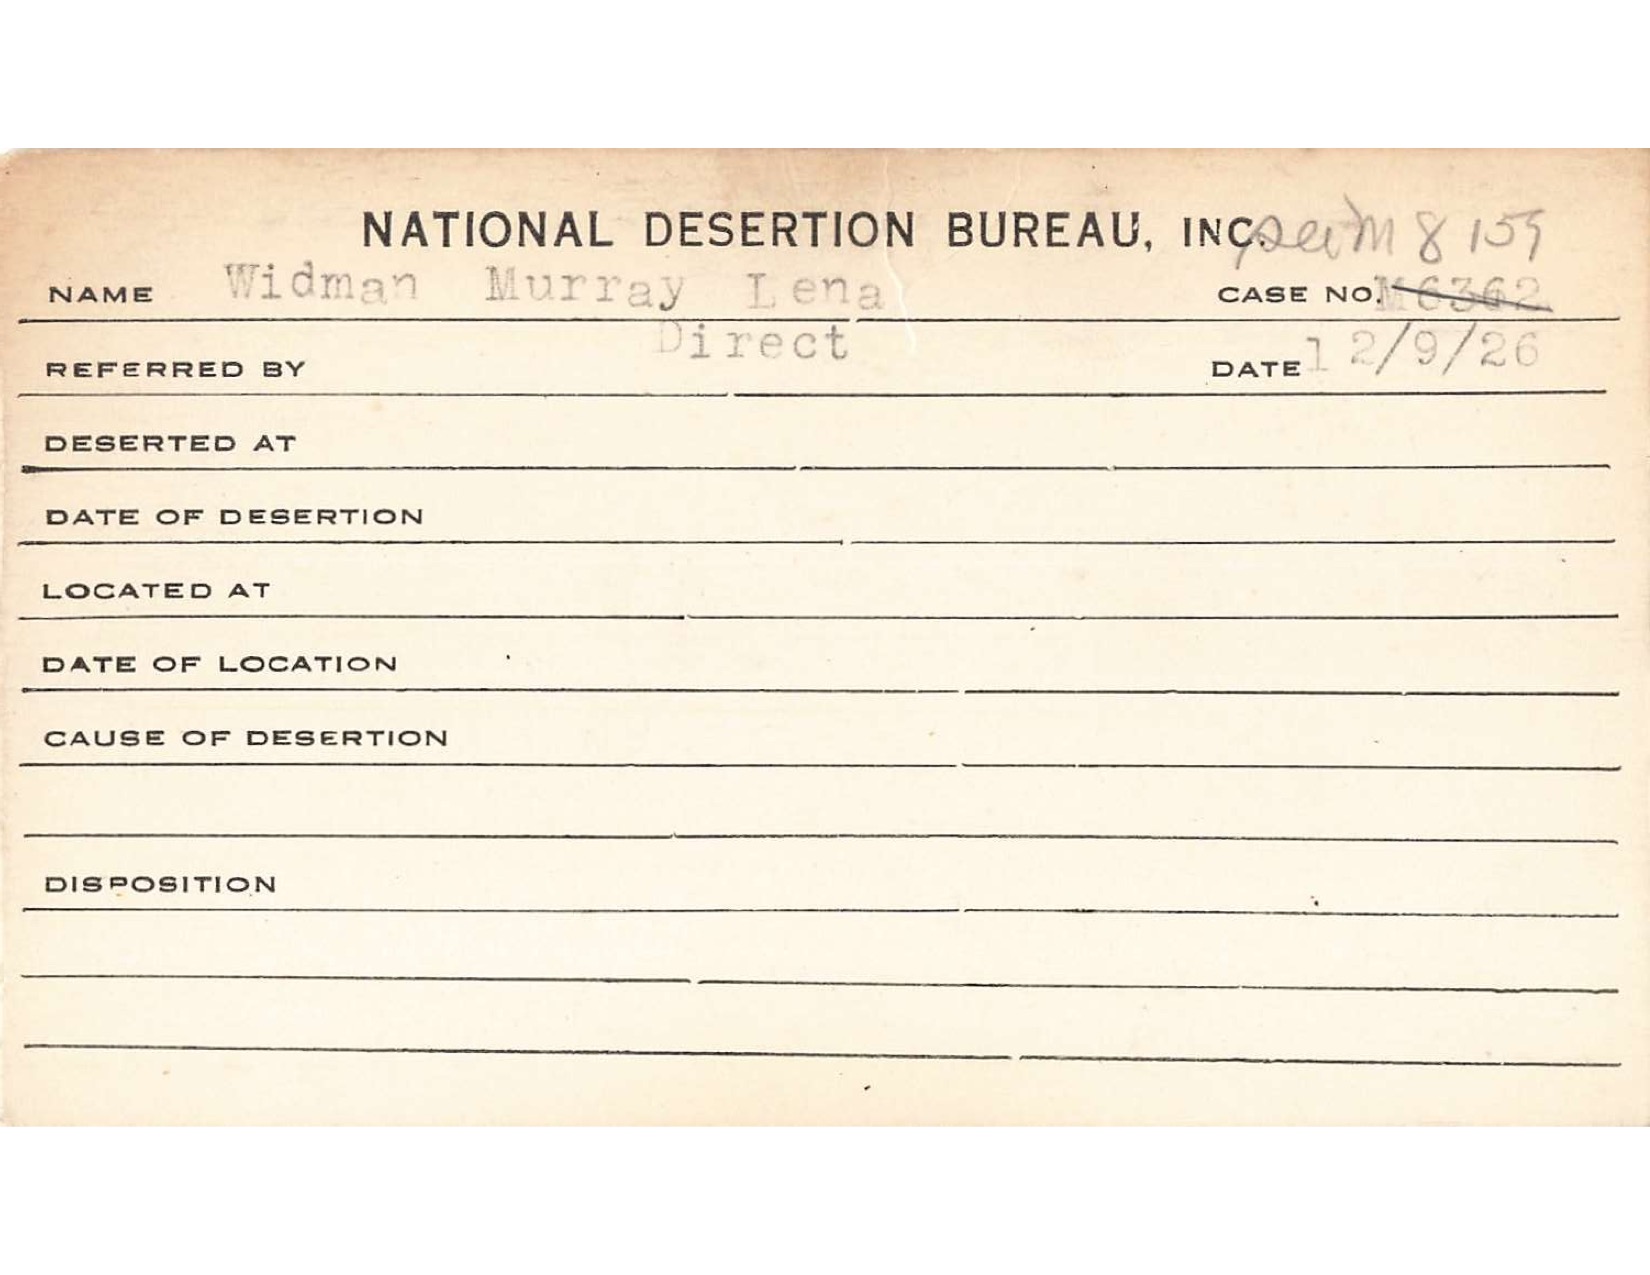 NATIONAL DESERTION BUREAU, INC. see M 8159
NAME Widman Murray Lena CASE NO. M6362
REFERRED BY Direct DATE 12/9/26
DESERTED AT
DATE OF DESERTION
LOCATED AT
DATE OF LOCATION
CAUSE OF DESERTION
DISPOSITION